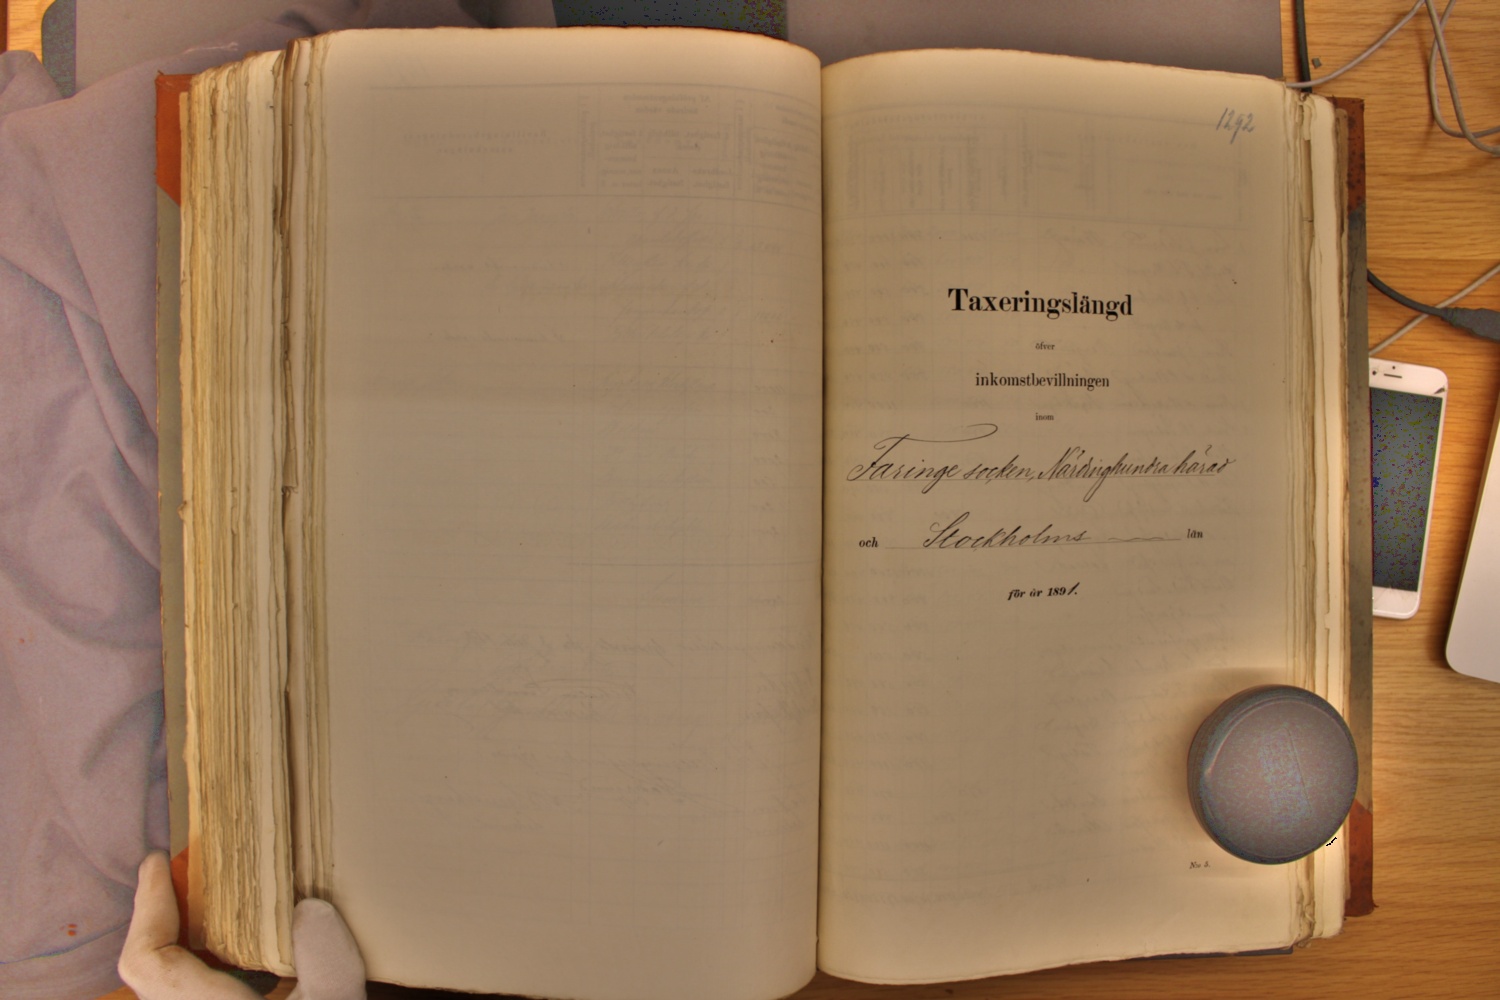 1292
Taxeringslängd
öfver
inkomstbevillningen
inom
Faringe socken, Närdinghundra härad
och Stockholms län
för år 1891.
N:o 3.